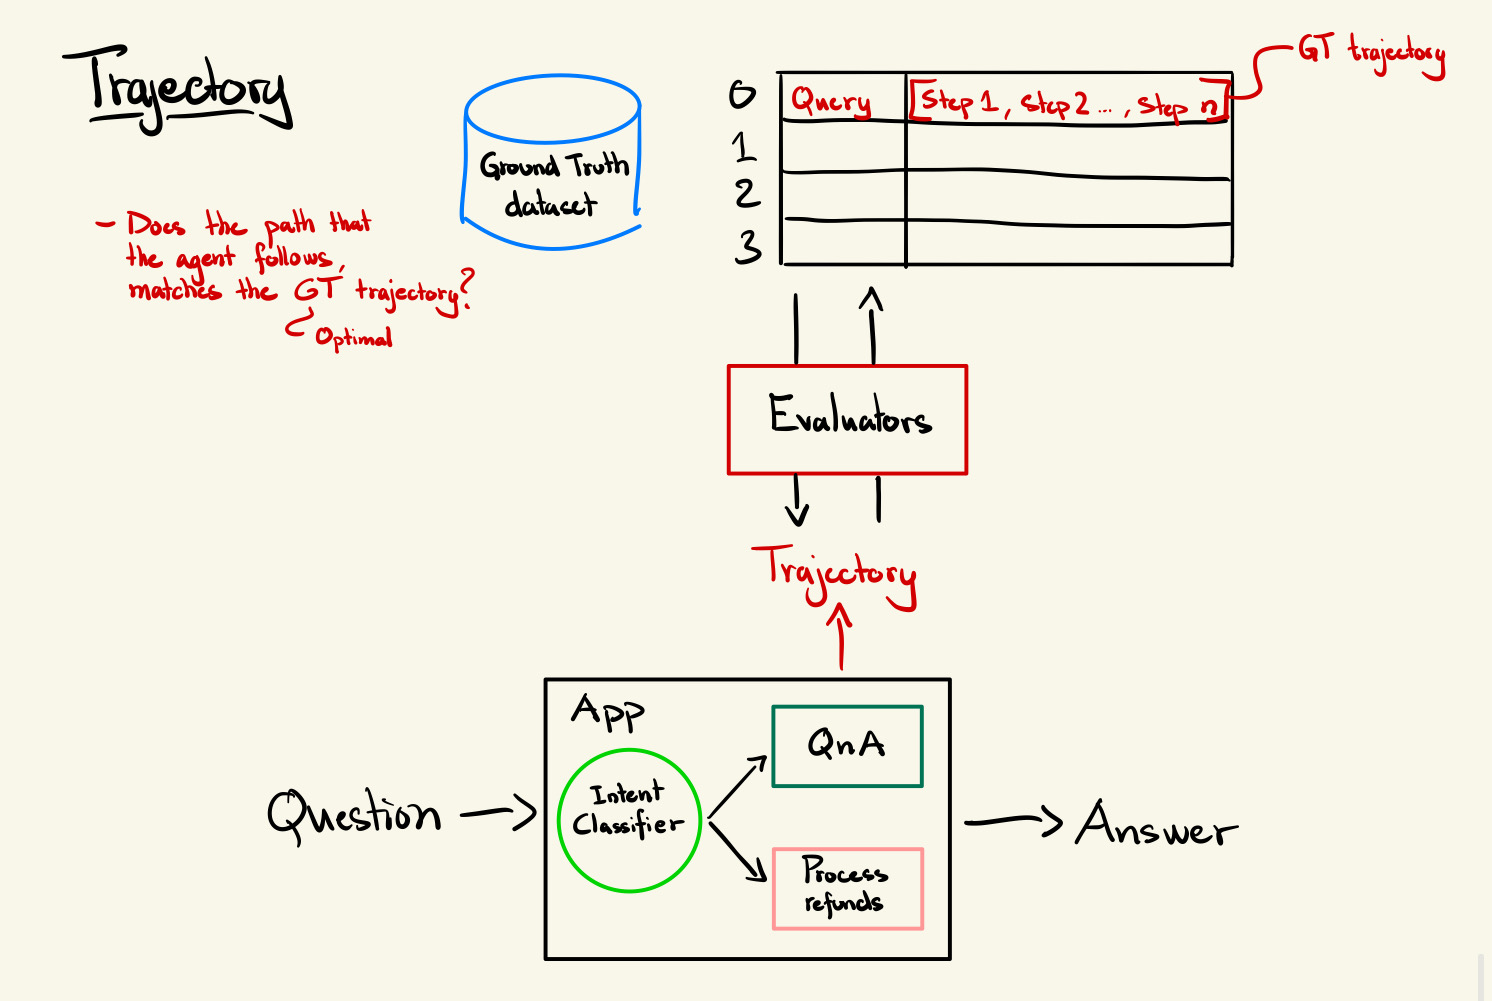 Trajectory
- Does the path that
the agent follows,
matches the GT trajectory?
Optimal
Ground Truth
dataset
GT trajectory
0 Query [Step 1, Step 2 ..., Step n]
1
2
3
Evaluators
Trajectory
App
Intent
Classifier
QnA
Process
refunds
Question
Answer